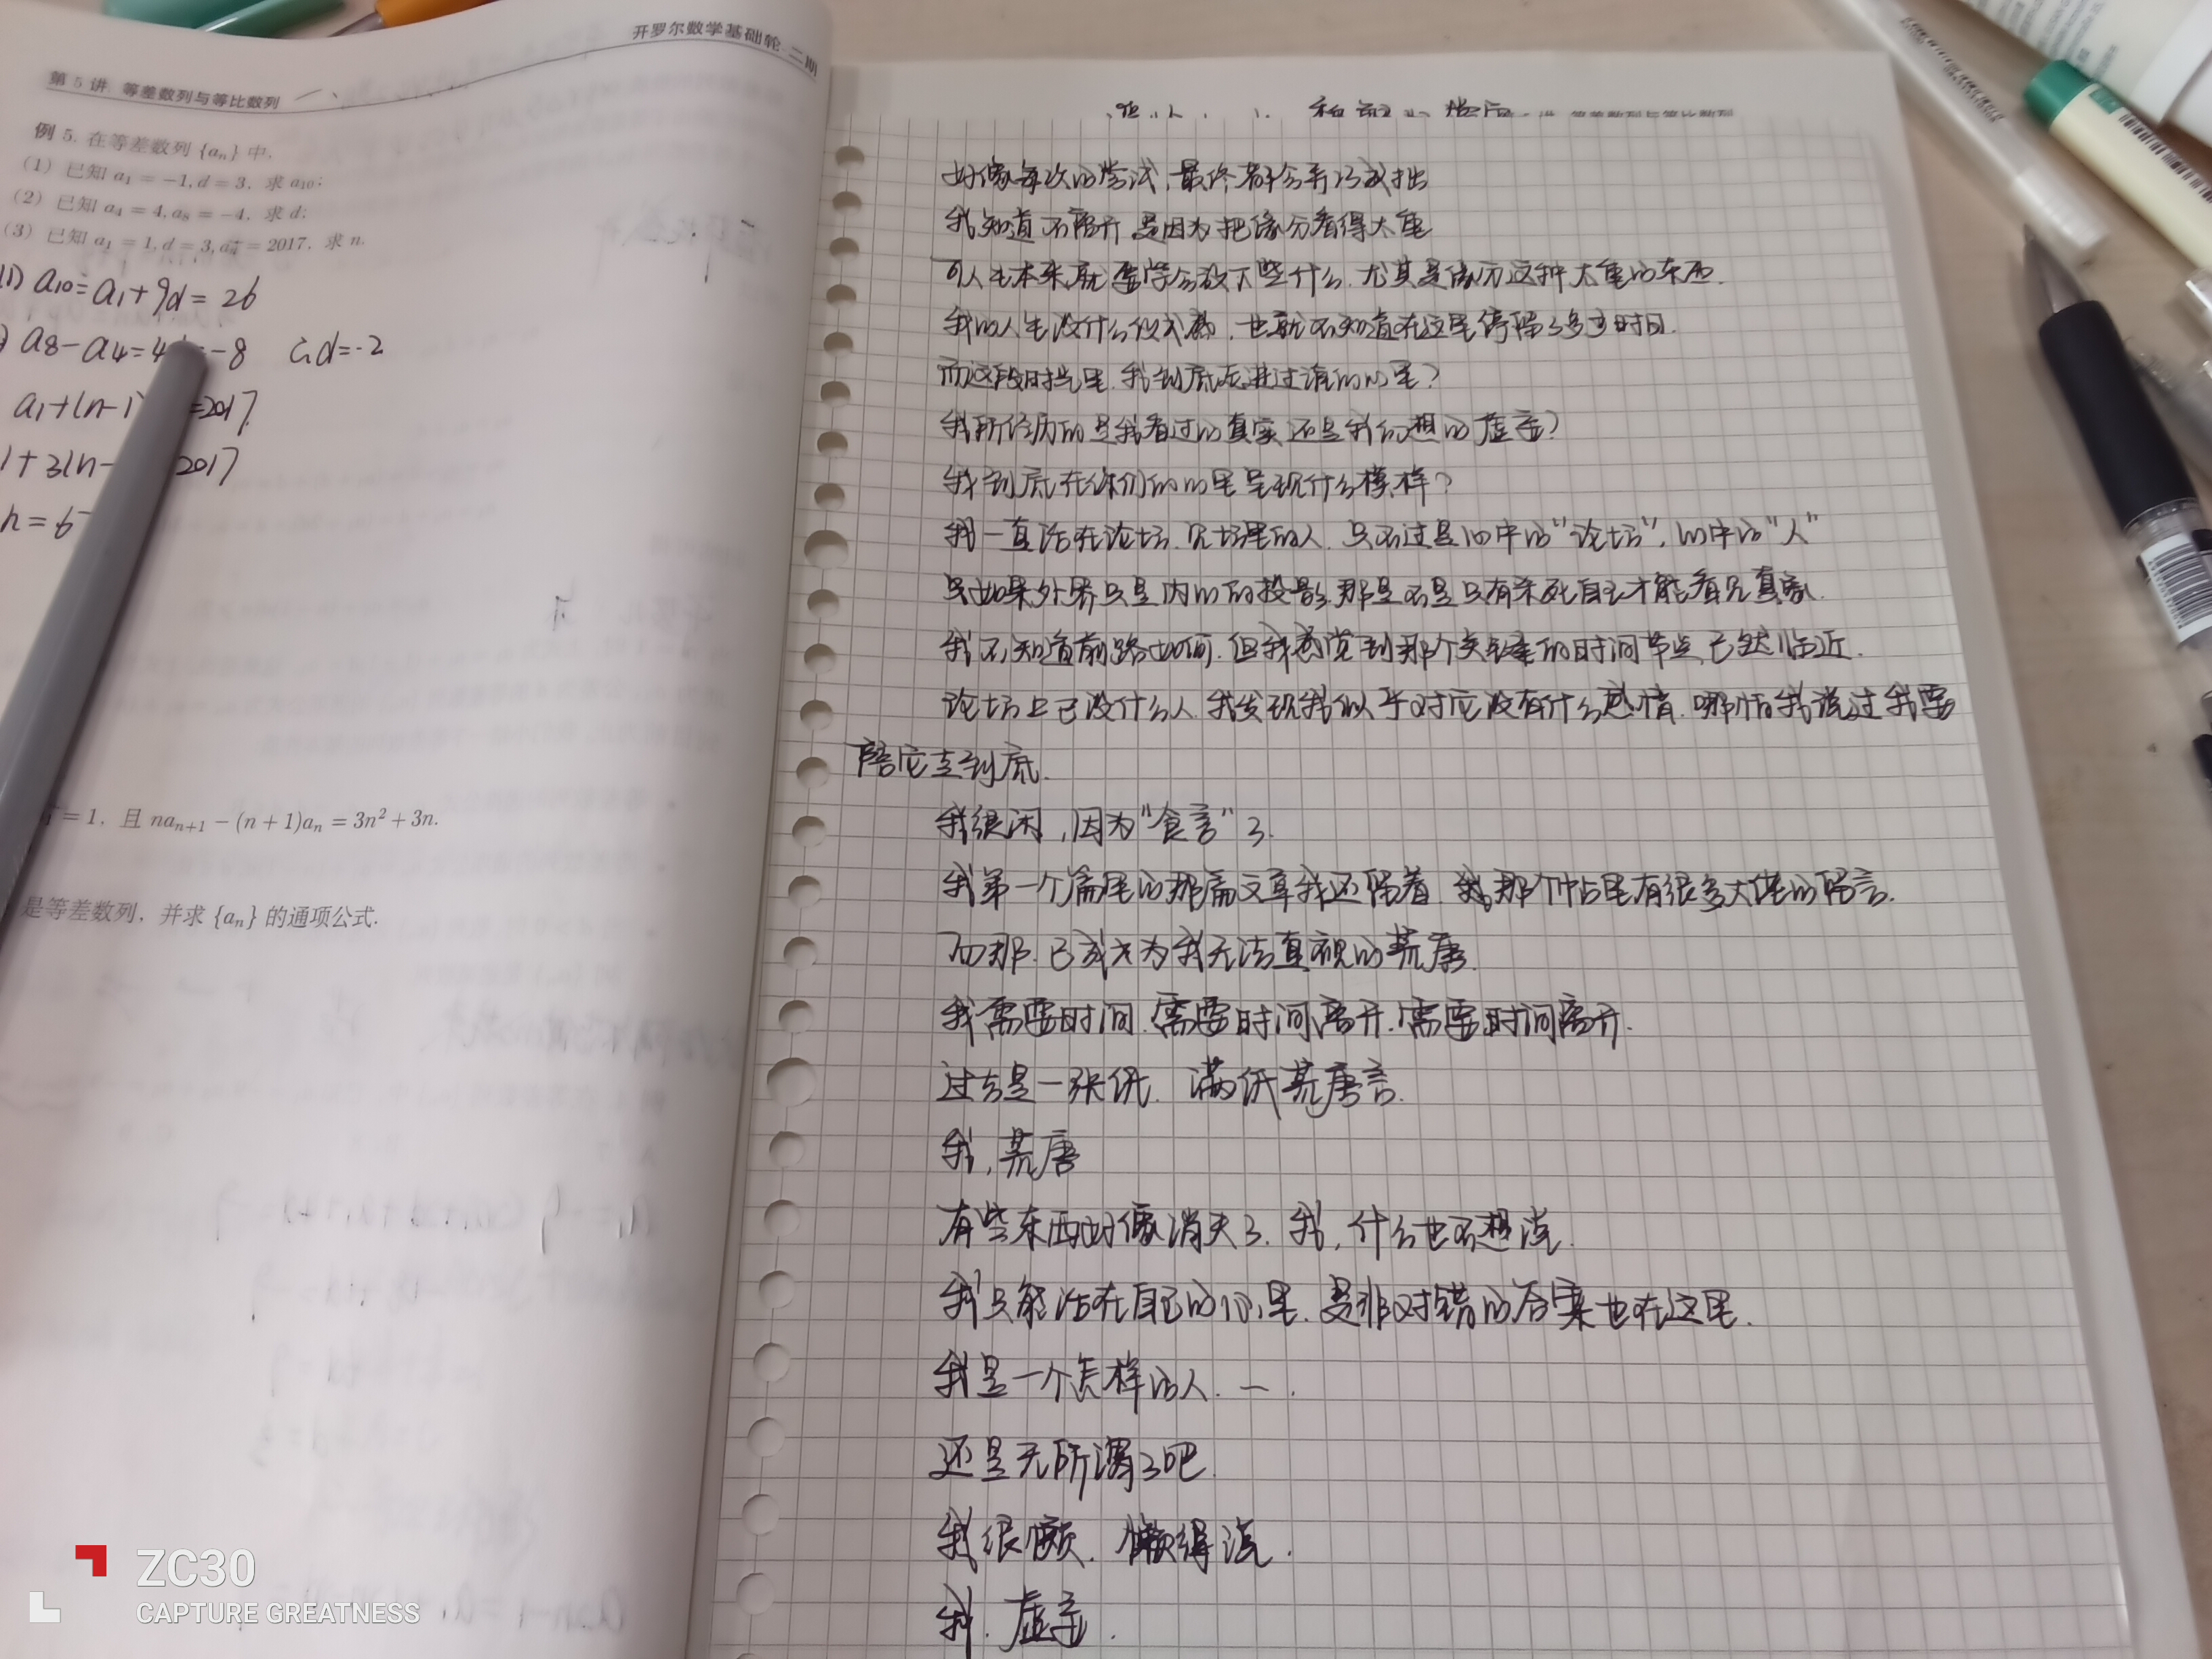 开罗尔数学基础轮 二期
第 5 讲 等差数列与等比数列
例 5. 在等差数列 {aₙ} 中,
(1) 已知 a₁ = −1, d = 3, 求 a₁₀;
(2) 已知 a₄ = 4, a₈ = −4, 求 d;
(3) 已知 a₁ = 1, d = 3, aₙ = 2017, 求 n.
(1) a₁₀ = a₁+9d = 26
a₈−a₄=4d=−8 ∴d=−2
a₁+(n−1) =2017
1+3(n− 2017
n=6
= 1, 且 naₙ₊₁ − (n + 1)aₙ = 3n² + 3n.
是等差数列, 并求 {aₙ} 的通项公式.
讲 等差数列与等比数列
好像每次的尝试,最终都会弄巧成拙
我知道不离开,是因为把缘分看得太重
可人生本来就要学会放下些什么,尤其是缘分这种太重的东西.
我的人生没什么仪式感,也就不知道在这里停留了多少时日.
而这段时光里,我到底走进过谁的心里?
我所经历的是我看过的真实还是我幻想的虚妄?
我到底在你们的心里呈现什么模样?
我一直活在论坛,见坛里的人,只不过是心中的“论坛”,心中的“人”
如果外界只是内心的投影,那是不是只有杀死自己才能看见真象.
我不知道前路如何,但我感觉到那个关键的时间节点已然临近.
论坛上已没什么人,我发现我似乎对它没有什么感情,哪怕我说过我要
陪它走到底.
我很闲,因为“食言”了.
我第一个篇尾的那篇文章我还留着,我那个帖里有很多大佬的留言.
而那,已成为我无法直视的荒唐.
我需要时间,需要时间离开,需要时间离开.
过去是一张纸,满纸荒唐言.
我,荒唐
有些东西好像消失了,我,什么也不想说.
我只能活在自己的心里,是非对错的答案也在这里.
我是一个怎样的人,一.
还是无所谓了吧.
我很懒,懒得说.
我,虚妄.
ZC30
CAPTURE GREATNESS